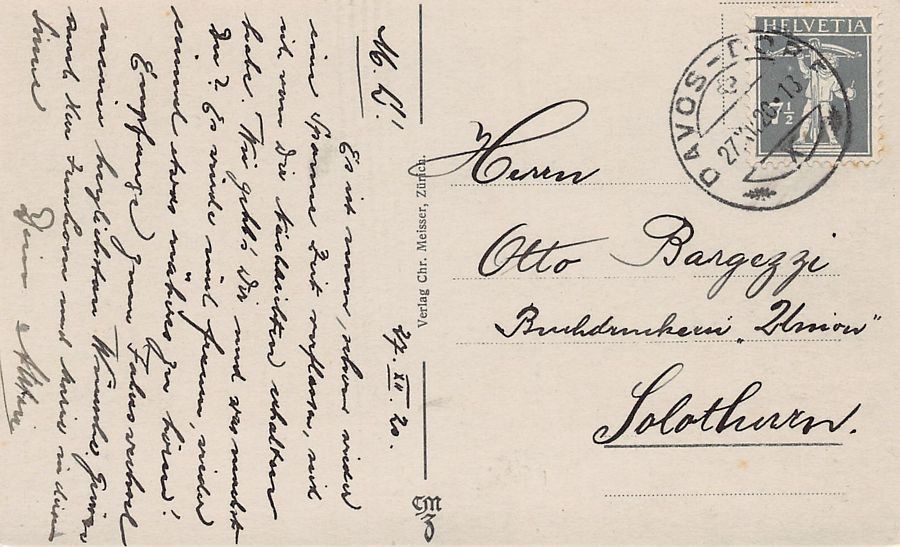 M. L!
27. XII. 20.
Es ist nun, schon wieder
eine Spanne Zeit verflossen, seit
ich von Dir Nachrichten erhalten
habe. Wie geht's Dir und was machst
Du? Es würde mich freuen, wieder
einmal etwas näheres zu hören!
Empfange zum Jahreswechsel
meine herzlichsten Wünsche. Grüsse
auch
Dein
Verlag Chr. Meisser, Zürich.
CM
Z
HELVETIA
7½
DAVOS-DORF
27.XII.20-13
Herrn
Otto Bargezzi
Buchdruckerei "Union"
Solothurn.